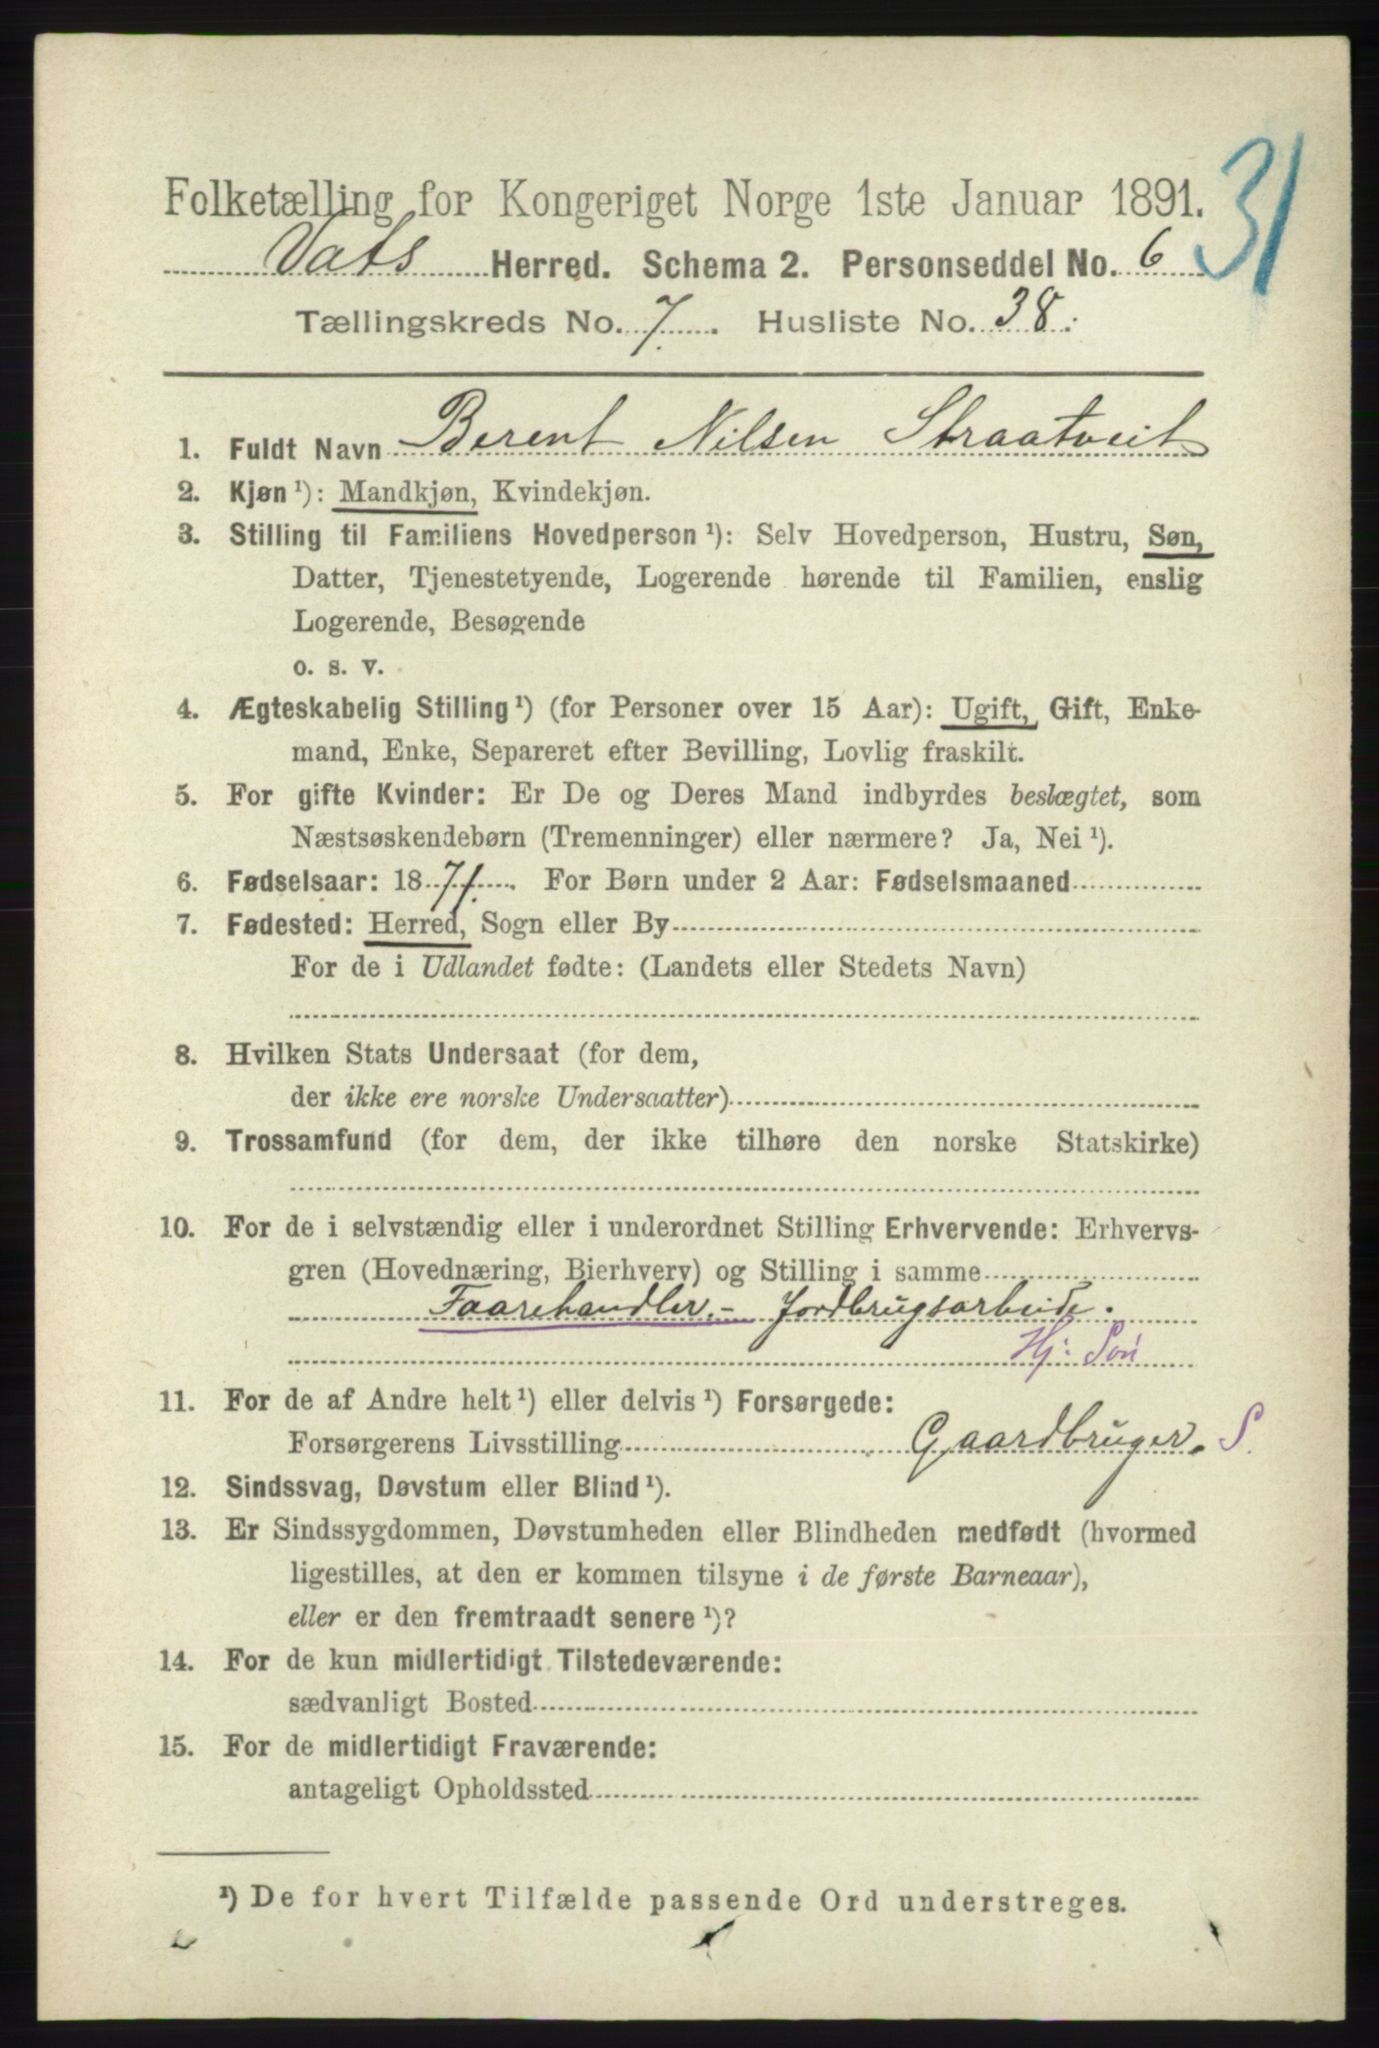 31
Folketælling for Kongeriget Norge 1ste Januar 1891.
Vats Herred. Schema 2. Personseddel No. 6
Tællingskreds No. 7. Husliste No. 38.
1. Fuldt Navn Berent Nilsen Straatveit
2. Kjøn ¹): Mandkjøn, Kvindekjøn.
3. Stilling til Familiens Hovedperson ¹): Selv Hovedperson, Hustru, Søn,
Datter, Tjenestetyende, Logerende hørende til Familien, enslig
Logerende, Besøgende
o. s. v.
4. Ægteskabelig Stilling ¹) (for Personer over 15 Aar): Ugift, Gift, Enke-
mand, Enke, Separeret efter Bevilling, Lovlig fraskilt.
5. For gifte Kvinder: Er De og Deres Mand indbyrdes beslægtet, som
Næstsøskendebørn (Tremenninger) eller nærmere? Ja, Nei ¹).
6. Fødselsaar: 1871. For Børn under 2 Aar: Fødselsmaaned
7. Fødested: Herred, Sogn eller By
For de i Udlandet fødte: (Landets eller Stedets Navn)
8. Hvilken Stats Undersaat (for dem,
der ikke ere norske Undersaatter)
9. Trossamfund (for dem, der ikke tilhøre den norske Statskirke)
10. For de i selvstændig eller i underordnet Stilling Erhvervende: Erhvervs-
gren (Hovednæring, Bierhverv) og Stilling i samme
Faarehandler. - Jordbrugsarbeide.
Hj: Søn
11. For de af Andre helt ¹) eller delvis ¹) Forsørgede:
Forsørgerens Livsstilling Gaardbruger. S.
12. Sindssvag, Døvstum eller Blind ¹).
13. Er Sindssygdommen, Døvstumheden eller Blindheden medfødt (hvormed
ligestilles, at den er kommen tilsyne i de første Barneaar),
eller er den fremtraadt senere ¹)?
14. For de kun midlertidigt Tilstedeværende:
sædvanligt Bosted
15. For de midlertidigt Fraværende:
antageligt Opholdssted
¹) De for hvert Tilfælde passende Ord understreges.